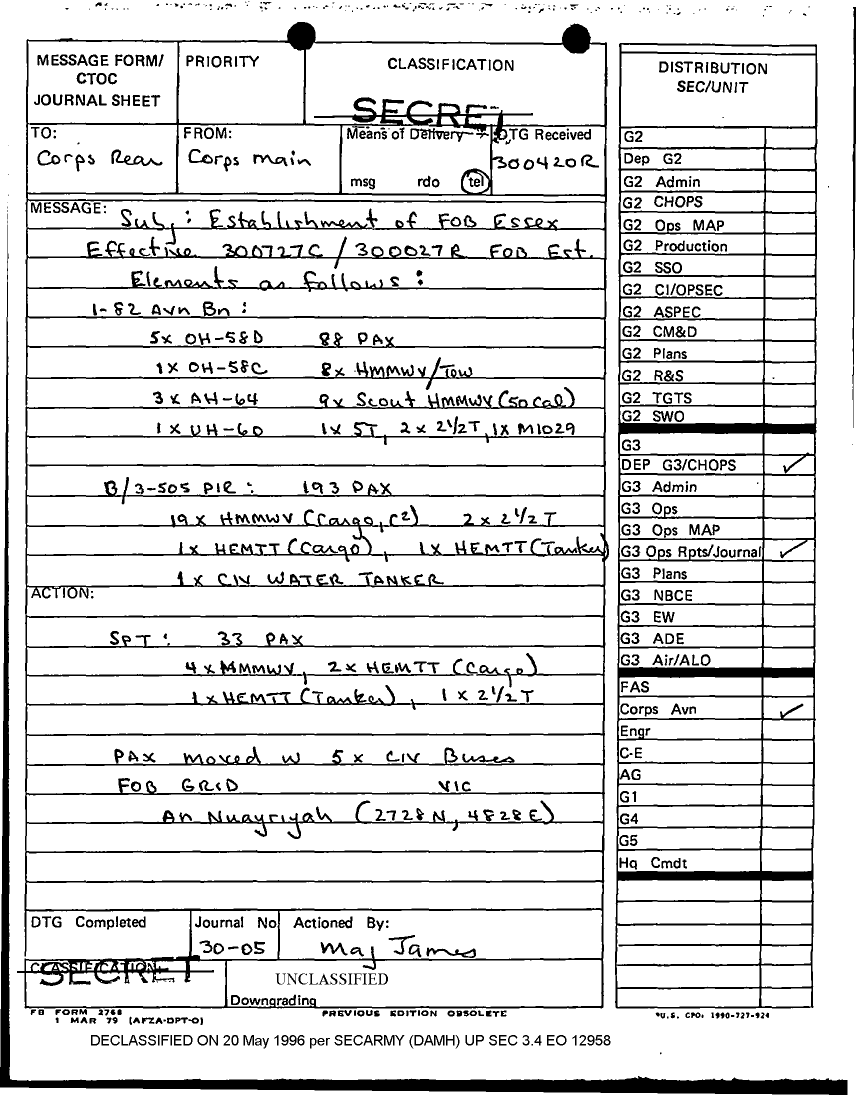 MESSAGE FORM/ CTOC JOURNAL SHEET
PRIORITY
CLASSIFICATION
SECRET
TO:
Corps Rear
FROM:
Corps main
Means of Delivery
msg rdo tel
DTG Received
300420R
MESSAGE:
Subj: Establishment of FOB Essex
Effective 300727C / 300027R FOB Est.
Elements as follows:
1-82 Avn Bn:
5x OH-58D 88 PAX
1x OH-58C 8x HMMWV/Tow
3x AH-64 9x Scout HMMWV (50 Cal)
1x UH-60 1x 5T, 2x 2½T, 1x M1029
B/3-505 PIR: 193 PAX
19x HMMWV (Cargo, C²) 2x 2½T
1x HEMTT (Cargo), 1x HEMTT (Tanker)
1x CIV WATER TANKER
ACTION:
SPT: 33 PAX
4x MMMWV, 2x HEMTT (Cargo)
1x HEMTT (Tanker), 1x 2½T
PAX moved w 5x CIV Buses
FOB GRID VIC
An Nuayriyah (2728N, 4828E)
DTG Completed
Journal No
30-05
Actioned By:
Maj James
CLASSIFICATION
SECRET
UNCLASSIFIED
Downgrading
FB FORM 2768
1 MAR 79 (AFZA-DPT-O)
PREVIOUS EDITION OBSOLETE
*U.S. GPO: 1990-727-924
DECLASSIFIED ON 20 May 1996 per SECARMY (DAMH) UP SEC 3.4 EO 12958
DISTRIBUTION
SEC/UNIT
G2
Dep G2
G2 Admin
G2 CHOPS
G2 Ops MAP
G2 Production
G2 SSO
G2 CI/OPSEC
G2 ASPEC
G2 CM&D
G2 Plans
G2 R&S
G2 TGTS
G2 SWO
G3
DEP G3/CHOPS ✓
G3 Admin
G3 Ops
G3 Ops MAP
G3 Ops Rpts/Journal ✓
G3 Plans
G3 NBCE
G3 EW
G3 ADE
G3 Air/ALO
FAS
Corps Avn ✓
Engr
C-E
AG
G1
G4
G5
Hq Cmdt